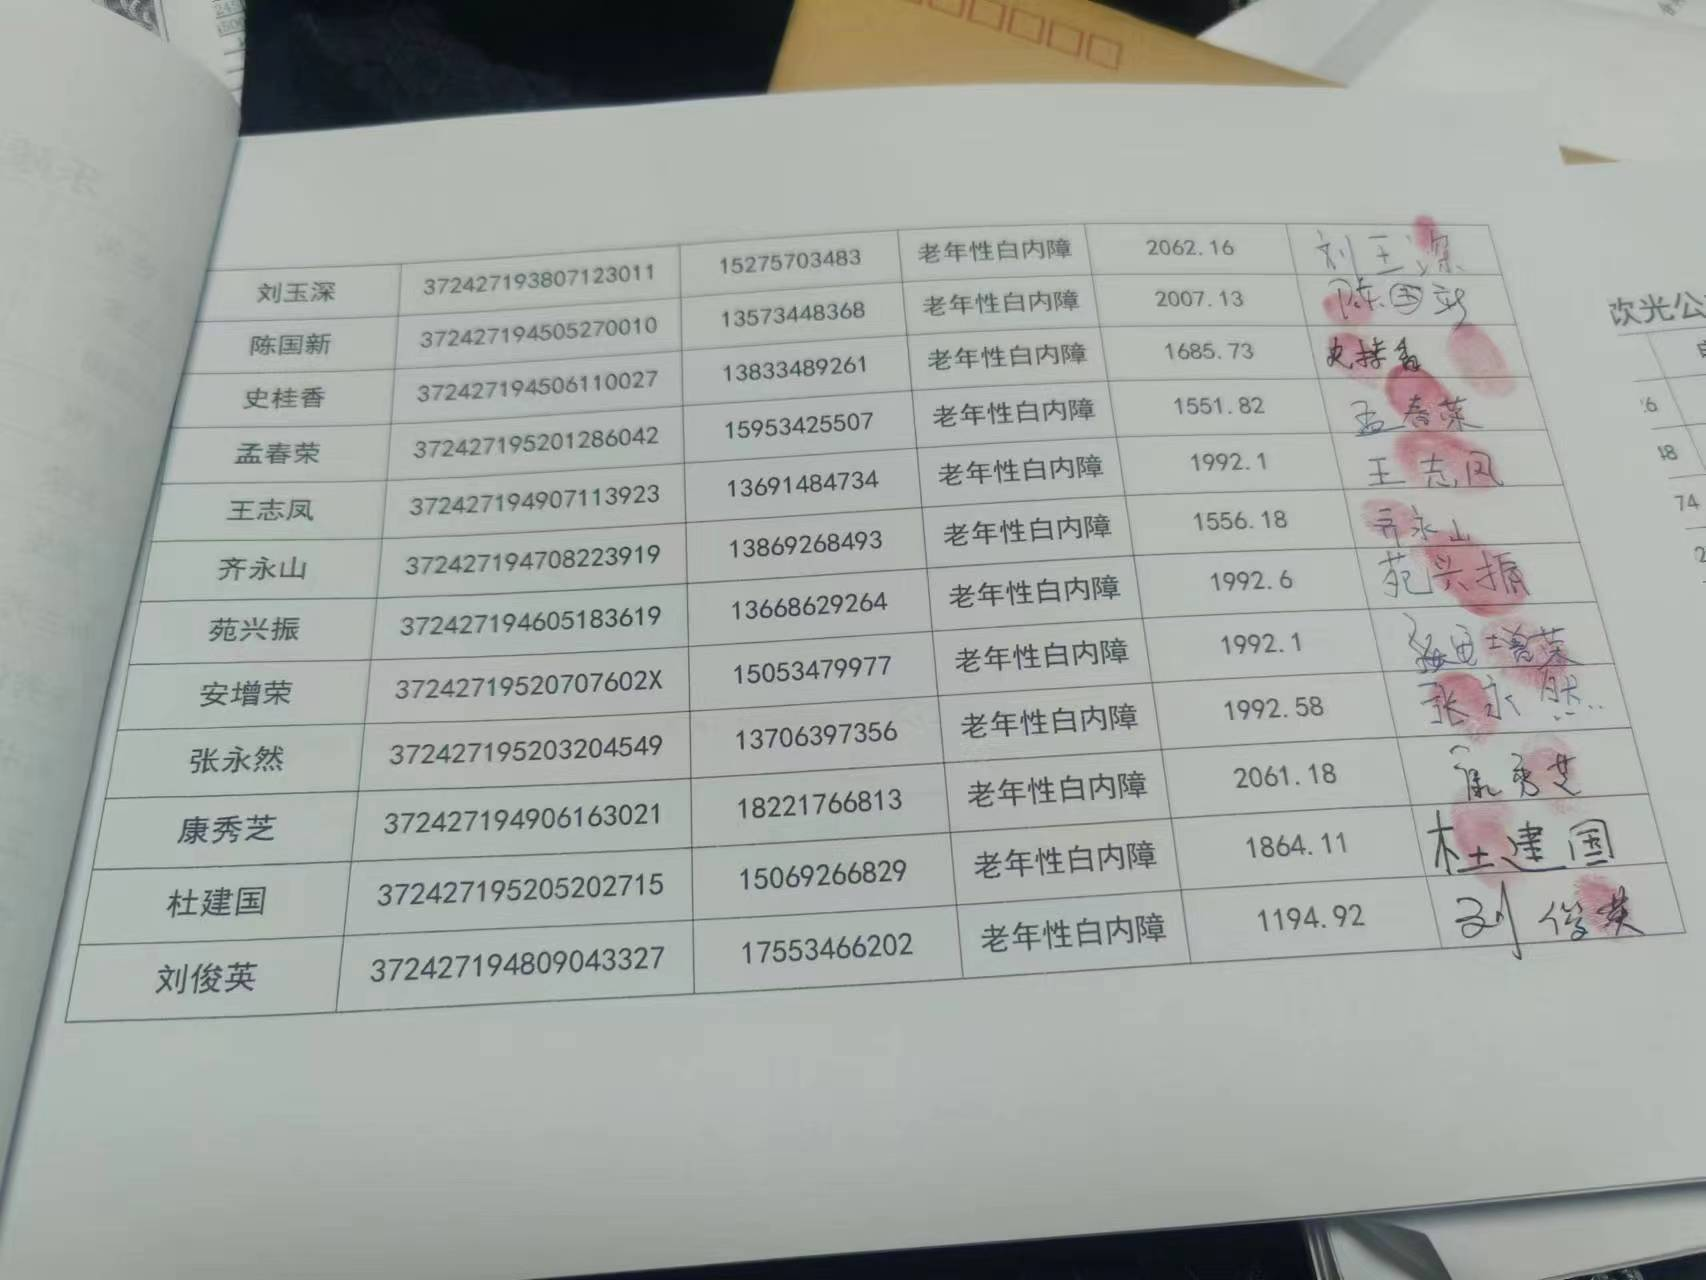 刘玉深 372427193807123011 15275703483 老年性白内障 2062.16 刘玉深
陈国新 372427194505270010 13573448368 老年性白内障 2007.13 陈国新
史桂香 372427194506110027 13833489261 老年性白内障 1685.73 史桂香
孟春荣 372427195201286042 15953425507 老年性白内障 1551.82 孟春荣
王志凤 372427194907113923 13691484734 老年性白内障 1992.1 王志凤
齐永山 372427194708223919 13869268493 老年性白内障 1556.18 齐永山
苑兴振 372427194605183619 13668629264 老年性白内障 1992.6 苑兴振
安增荣 37242719520707602X 15053479977 老年性白内障 1992.1 增荣
张永然 372427195203204549 13706397356 老年性白内障 1992.58 张永然
康秀芝 372427194906163021 18221766813 老年性白内障 2061.18 康秀芝
杜建国 372427195205202715 15069266829 老年性白内障 1864.11 杜建国
刘俊英 372427194809043327 17553466202 老年性白内障 1194.92 刘俊英
欢光公
48
74